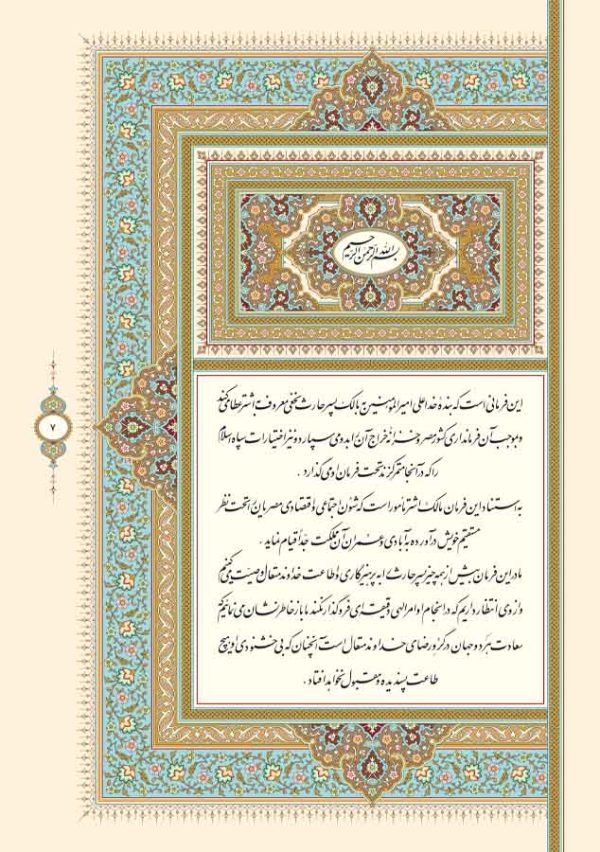 بسم الله الرحمن الرحیم
این فرمانی است که بنده خدا علی امیرالمؤمنین به مالک پسر حارث نخعی معروف به اشتر عطا می کند
و بموجب آن فرمانداری کشور مصر و خزانه خراج آن را بدو می سپارد و نیز اختیارات سپاه اسلام
را که در آنجا متمرکزند تحت فرمان او می گذارد .
به استناد این فرمان مالک اشتر مأمور است که شئون اجتماعی و اقتصادی مصریان را تحت نظر
مستقیم خویش درآورده به آبادی و عمران آن مملکت جداً قیام نماید .
ما در این فرمان بیش از همه چیز پسر حارث را به پرهیزگاری و اطاعت خداوند متعال وصیت می کنیم
و از وی انتظار داریم که در انجام اوامر الهی دقیقه ای فروگذار نکند ما باز خاطرنشان می نمائیم که
سعادت هر دو جهان در گرو رضای خداوند متعال است آنچنان که بی خشنودی او هیچ
طاعت پسندیده و مقبول نخواهد افتاد .
۷